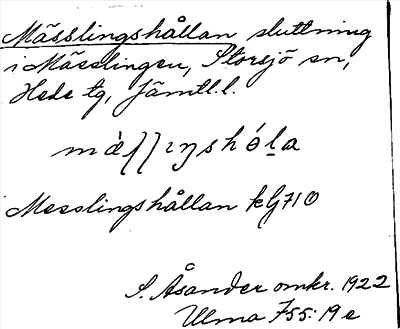 Mässlingshållan sluttning
i Mässlingen, Storsjö sn,
Hede tg, Jämtl. l.
Messlingshållan kbl 710
S. Åsander omkr. 1922
Ulma 755:19 e